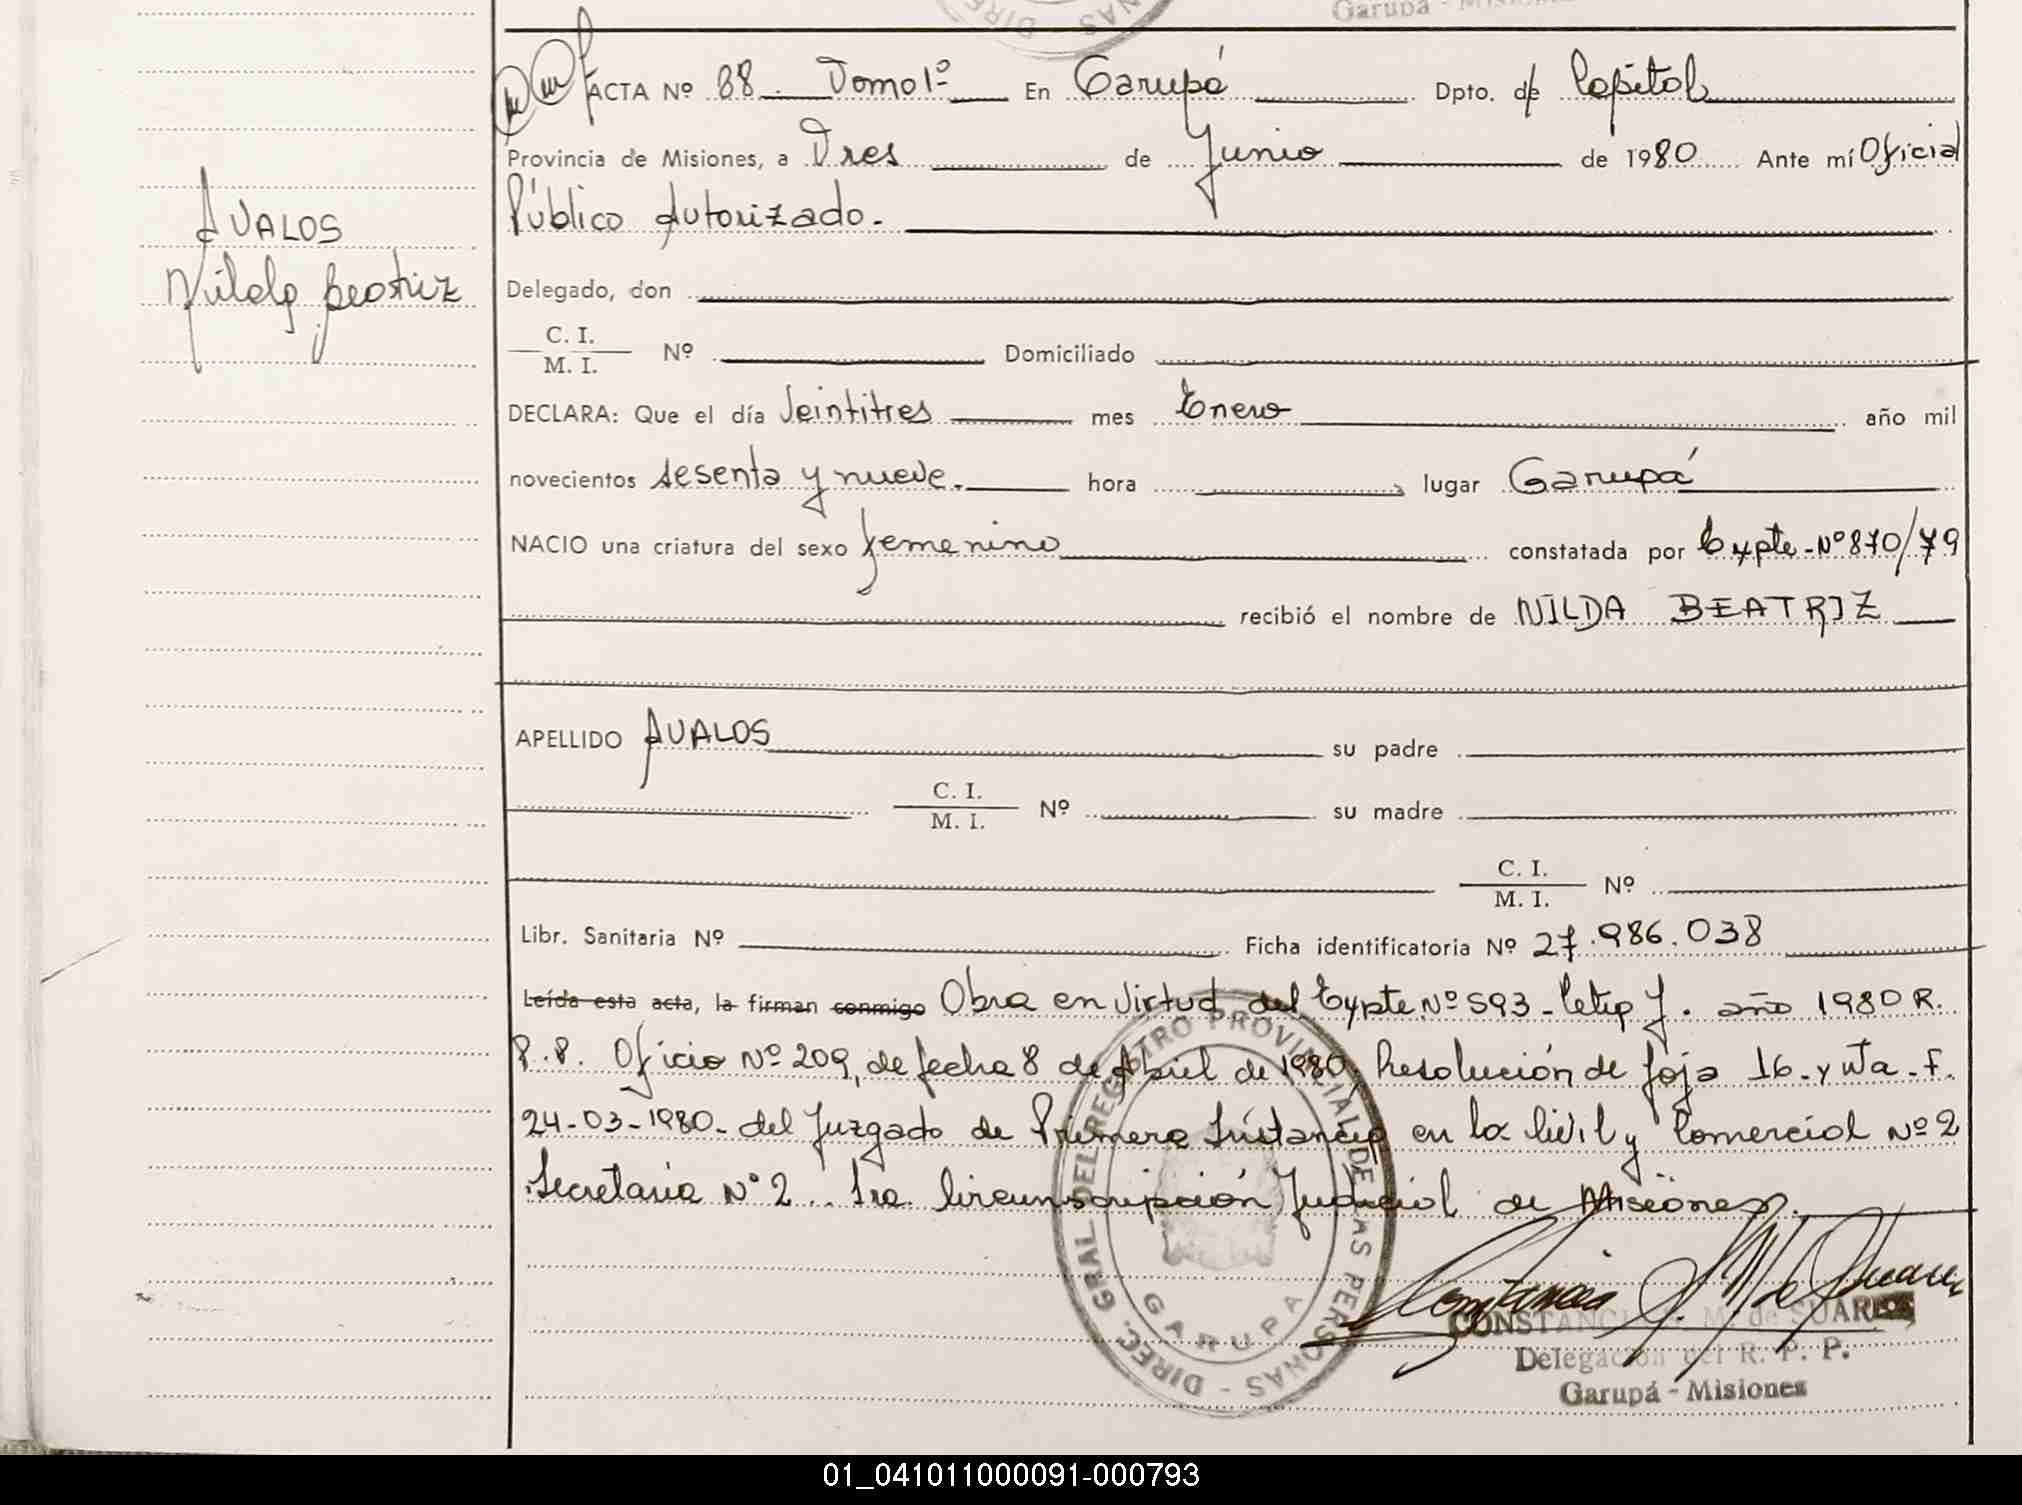 Garupá - Misiones
ACTA Nº 88. Tomo 1º En Garupá Dpto. de Capital
Provincia de Misiones, a Tres de Junio de 1980 Ante mí Oficial
Público Autorizado.
AVALOS
Nilda Beatriz
Delegado, don
C. I.
M. I. Nº Domiciliado
DECLARA: Que el día Veintitres mes Enero año mil
novecientos sesenta y nueve. hora lugar Garupá
NACIO una criatura del sexo femenino constatada por Expte-Nº 870/79
recibió el nombre de NILDA BEATRIZ
APELLIDO AVALOS su padre
C. I.
M. I. Nº su madre
C. I.
M. I. Nº
Libr. Sanitaria Nº Ficha identificatoria Nº 27.986.038
Leída esta acta, la firman conmigo Obra en Virtud del Expte Nº 593- Letra J. año 1980 R.
P.P. Oficio Nº 209, de fecha 8 de Abril de 1980, Resolución de foja 16-y vta-F.
24-03-1980- del Juzgado de Primera Instancia en lo Civil y Comercial Nº 2
Secretaria Nº 2.. 1ra Circunscripción Judicial de Misiones.
DIREC. GRAL DEL REGISTRO PROVINCIAL DE LAS PERSONAS -
GARUPA
CONSTANCIA M. de SUAREZ
Delegación del R. P. P.
Garupá - Misiones
01_041011000091-000793